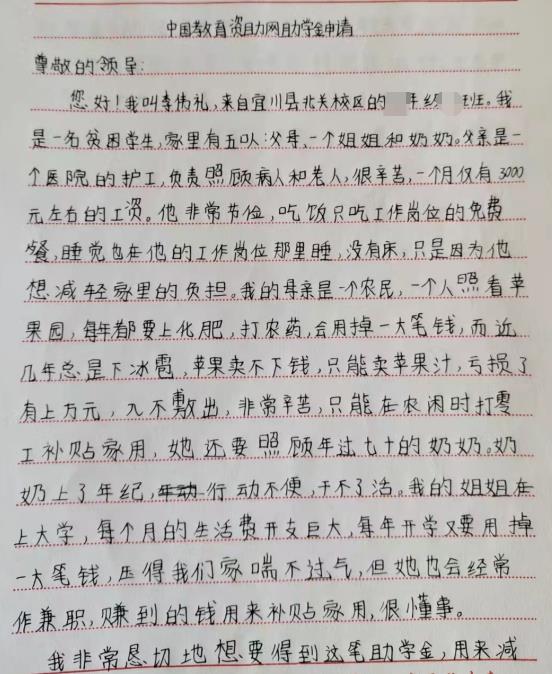 中国教育资助网助学金申请
尊敬的领导:
您好!我叫李伟礼,来自宜川县北关校区的 年级 班。我
是一名贫困学生,家里有五口人:父母、一个姐姐和奶奶。父亲是一
个医院的护工,负责照顾病人和老人,很辛苦,一个月仅有3000
元左右的工资。他非常节俭,吃饭只吃工作岗位的免费
餐,睡觉也在他的工作岗位那里睡,没有床,只是因为他
想减轻家里的负担。我的母亲是一个农民,一个人照看苹
果园,每年都要上化肥,打农药,会用掉一大笔钱,而近
几年总是下冰雹,苹果卖不下钱,只能卖苹果汁,亏损了
有上万元,入不敷出,非常辛苦,只能在农闲时打零
工补贴家用,她还要照顾年过七十的奶奶。奶
奶上了年纪,行动不便,干不了活。我的姐姐在
上大学,每个月的生活费开支巨大,每年开学又要用掉
一大笔钱,压得我们家喘不过气,但她也会经常
作兼职,赚到的钱用来补贴家用,很懂事。
我非常恳切地想要得到这笔助学金,用来减